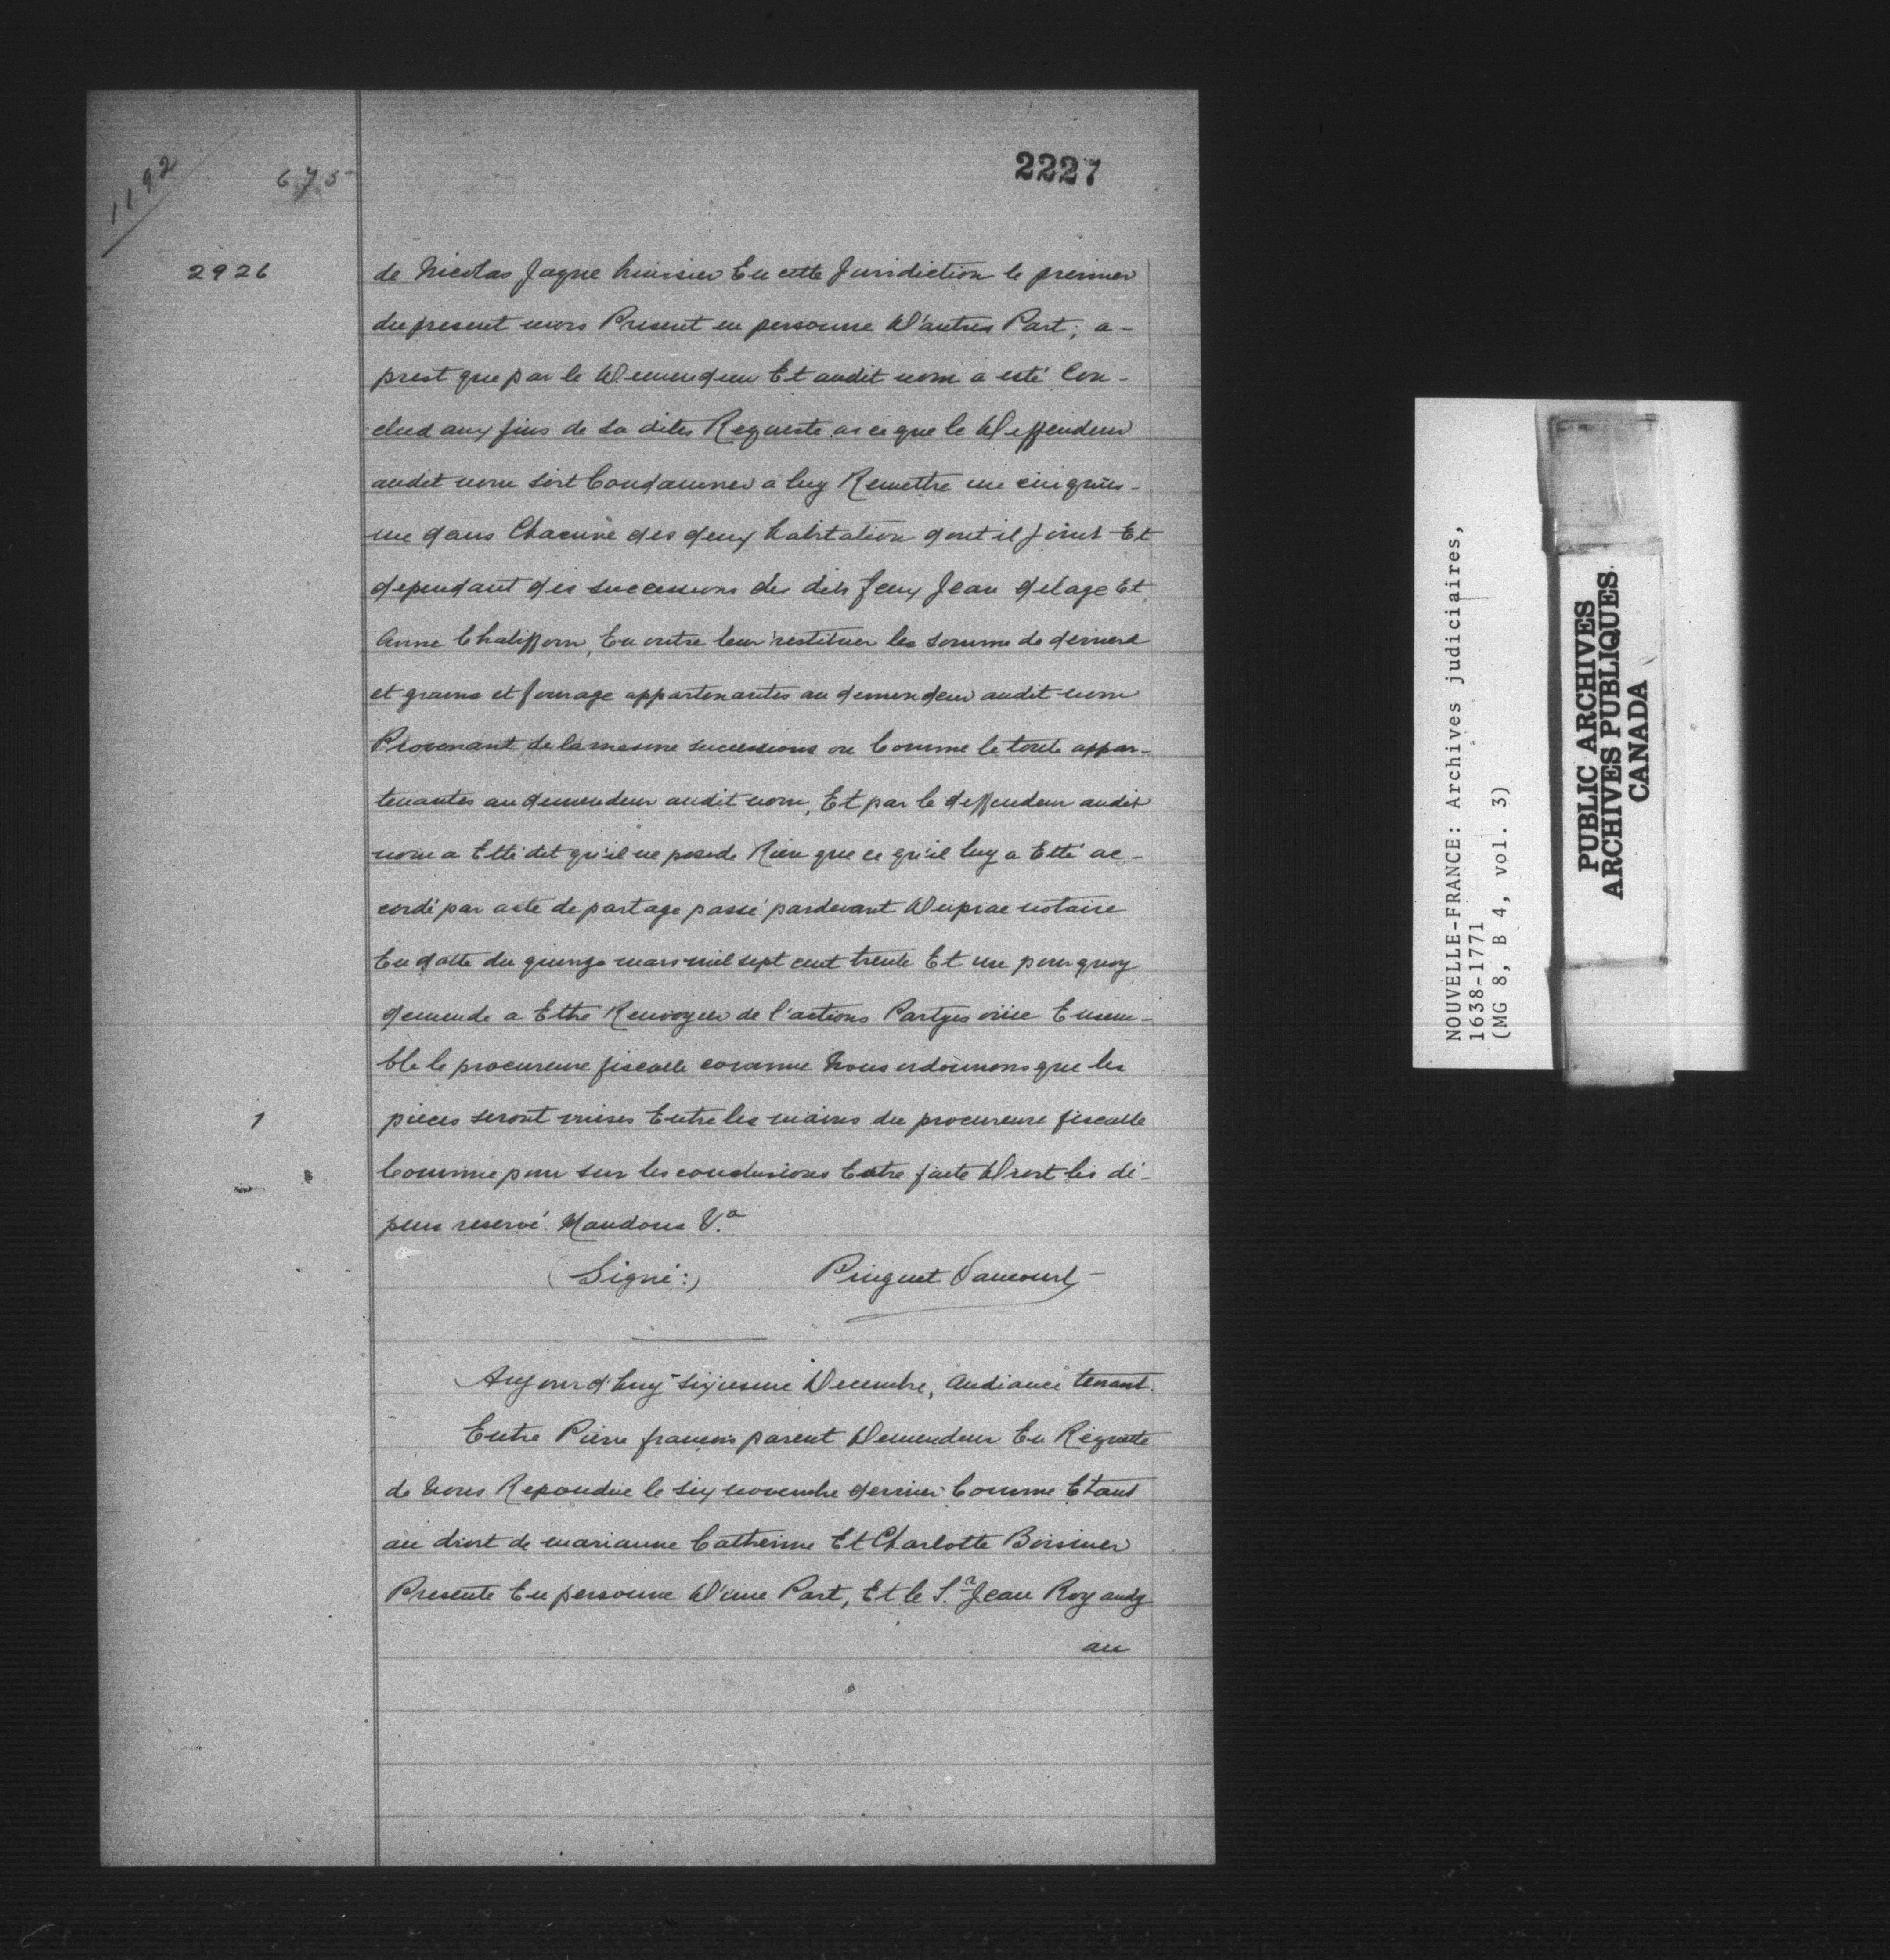 1192
675
2227
2926
de Nicolas Jagne huissier En cette Jurisdiction le premier
du present mois Present en personne D'autres Part; a-
prest que par le Demendeur Et audit nom a esté Con-
clud aux fins de sa dites Requeste as ce que le Deffendeur
audit nom soit Condamner a luy Remettre une cinquies-
me dans Chacune des deux habitation dont il jouit Et
dependant des successions des dits feux Jean delage Et
Anne Chaliffour, En outre leur restituer les somme de deniers
et grains et fourage appartenantes au demendeur audit nom
Provenant de la mesme successions ou Comme le toute appar-
tenantes au demendeur audit nom, Et par le deffendeur audit
nom a Etté dit qu'il ne posede Rien que ce qu'il luy a Etté ac-
cordé par acte de partage passé pardevant Duprac notaire
En datte du quinze mars mil sept cent trente Et un pourquoy
demende a Ethre Renvoyer de l'actions Partyes ouïe Ensem-
ble le procureure fiscalle comme Nous ordonnons que les
1
pieces seront mises Entre les mains du procureure fiscalle
Comme pour sur les conclusions Estre faite Droit les dé-
pens reservé. Mandons &.a
(Signé:) Pinguet Vaucourt
Aujourd'huy Sixiesme Decembre, Audiance tenant.
Entre Pierre francois parent Demendeur En Requette
de Nous Repondue le six novembre dernier Comme Etant
au droit de marianne Catherine Et Charlotte Boisiner
Presente En personne D'une Part, Et le S.r Jean Roy audy
au
NOUVELLE-FRANCE: Archives judiciaires,
1638-1771
(MG 8, B 4, vol. 3)
PUBLIC ARCHIVES
ARCHIVES PUBLIQUES
CANADA